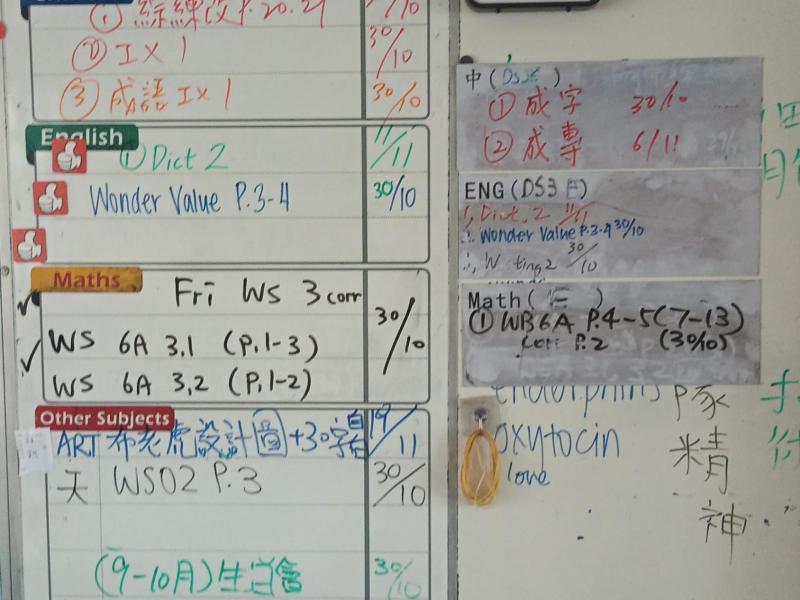 ① 綜練改 P.20.21 30/10
② I X 1 30/10
③ 成語 I X 1 30/10
English
① Dict 2 11/11
Wonder Value P.3-4 30/10
Maths
Fri WS 3 corr
WS 6A 3.1 (P.1-3) 30/10
WS 6A 3.2 (P.1-2)
Other Subjects
ART 布老虎設計圖+30字自白 19/11
天 WS02 P.3 30/10
(9-10月)生日會 30/10
中(DS)
① 成字 30/10
② 成專 6/11
ENG(DS3)
Dict. 2 11/11
Wonder Value P.3-4 30/10
W ting 2 30/10
Math( )
① WB6A P.4-5(7-13)
corr P.2 (30/10)
endorphins
oxytocin
love
精
神